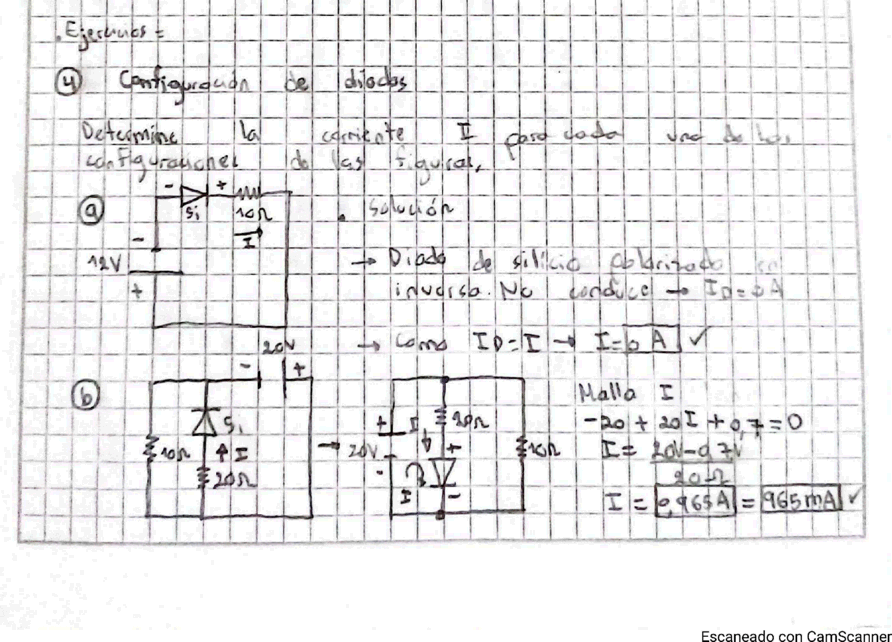 . Ejercicios =
④ Configuración de diodos
Determine la corriente I para cada una de las
configuraciones de las figuras,
ⓐ
- + 
Si
10Ω
I
-
12V
+
. Solución
→ Diodo de silicio polarizado en
inversa. No conduce → ID=0A
→ Como ID=I → I=0A ✓
ⓑ
20V
- +
10Ω
Si
I
20Ω
→
+
20V
-
I
20Ω
+
-
I
10Ω
Malla I
-20 + 20I + 0,7 = 0
I = 20V-0,7V
20Ω
I = 0,965A = 965mA ✓
Escaneado con CamScanner